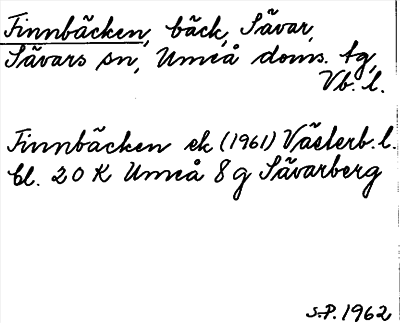 Finnbäcken, bäck, Sävar,
Sävars sn, Umeå doms. tg,
Vb. l.
Finnbäcken ek (1961) Västerb. l.
bl. 20 K Umeå 8 g Sävarberg
S.P. 1962